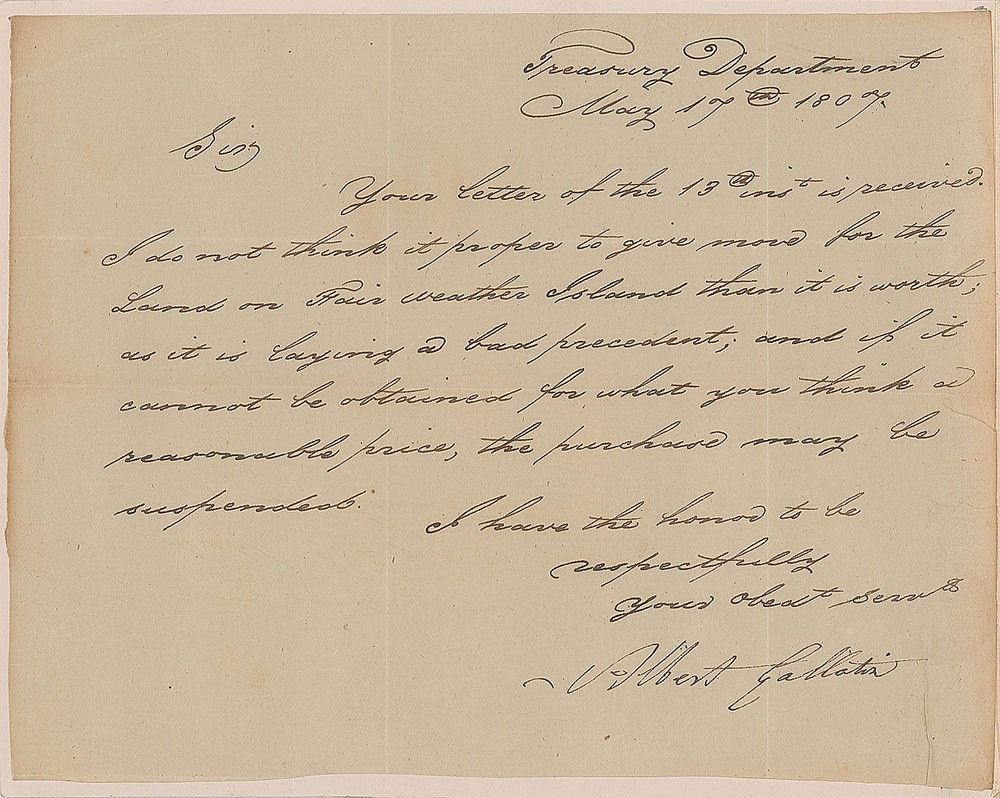 Treasury Department
May 17th 1807.
Sir,
Your letter of the 13th inst is received.
I do not think it proper to give more for the
Land on Fair weather Island than it is worth;
as it is laying a bad precedent; and if it
cannot be obtained for what you think a
reasonable price, the purchase may be
suspended.
I have the honor to be
respectfully
Your obedt servt
Albert Gallatin